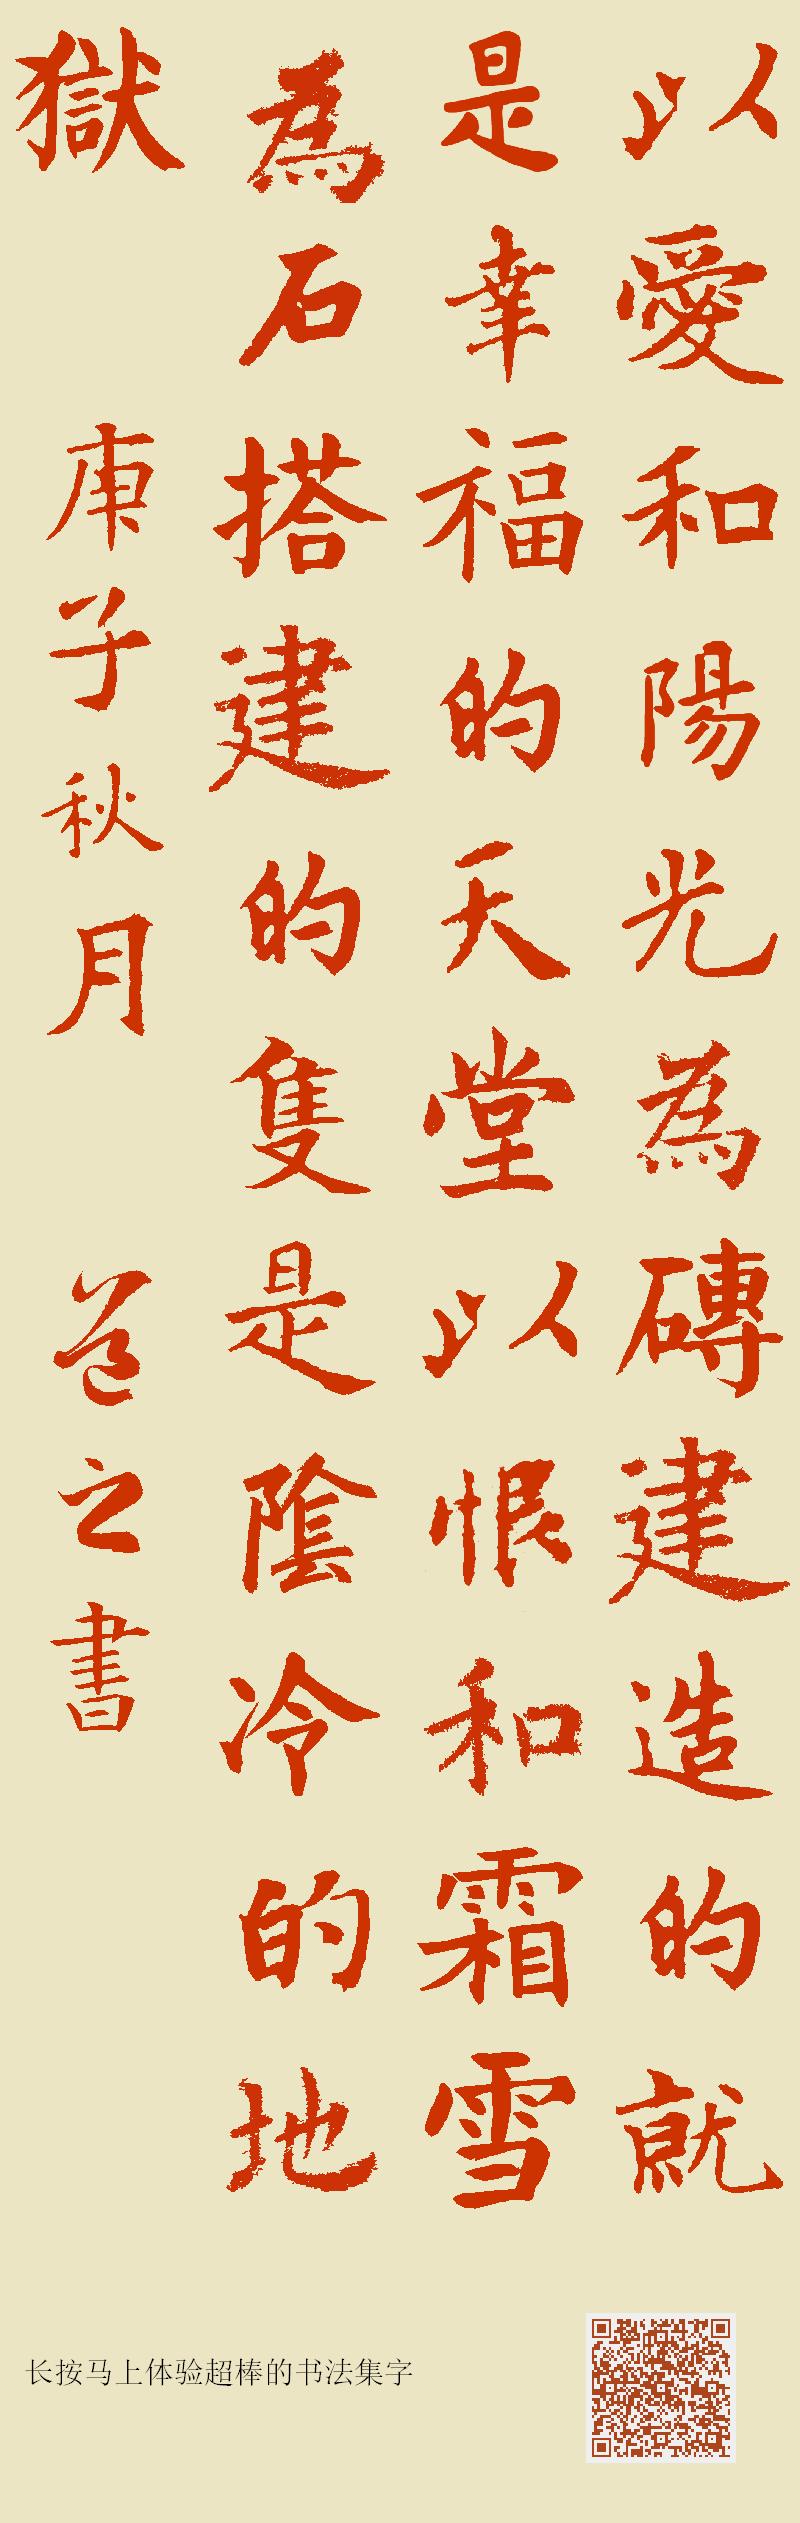 以愛和陽光為磚建造的就
是幸福的天堂以恨和霜雪
為石搭建的隻是陰冷的地
獄
庚子秋月
之書
长按马上体验超棒的书法集字